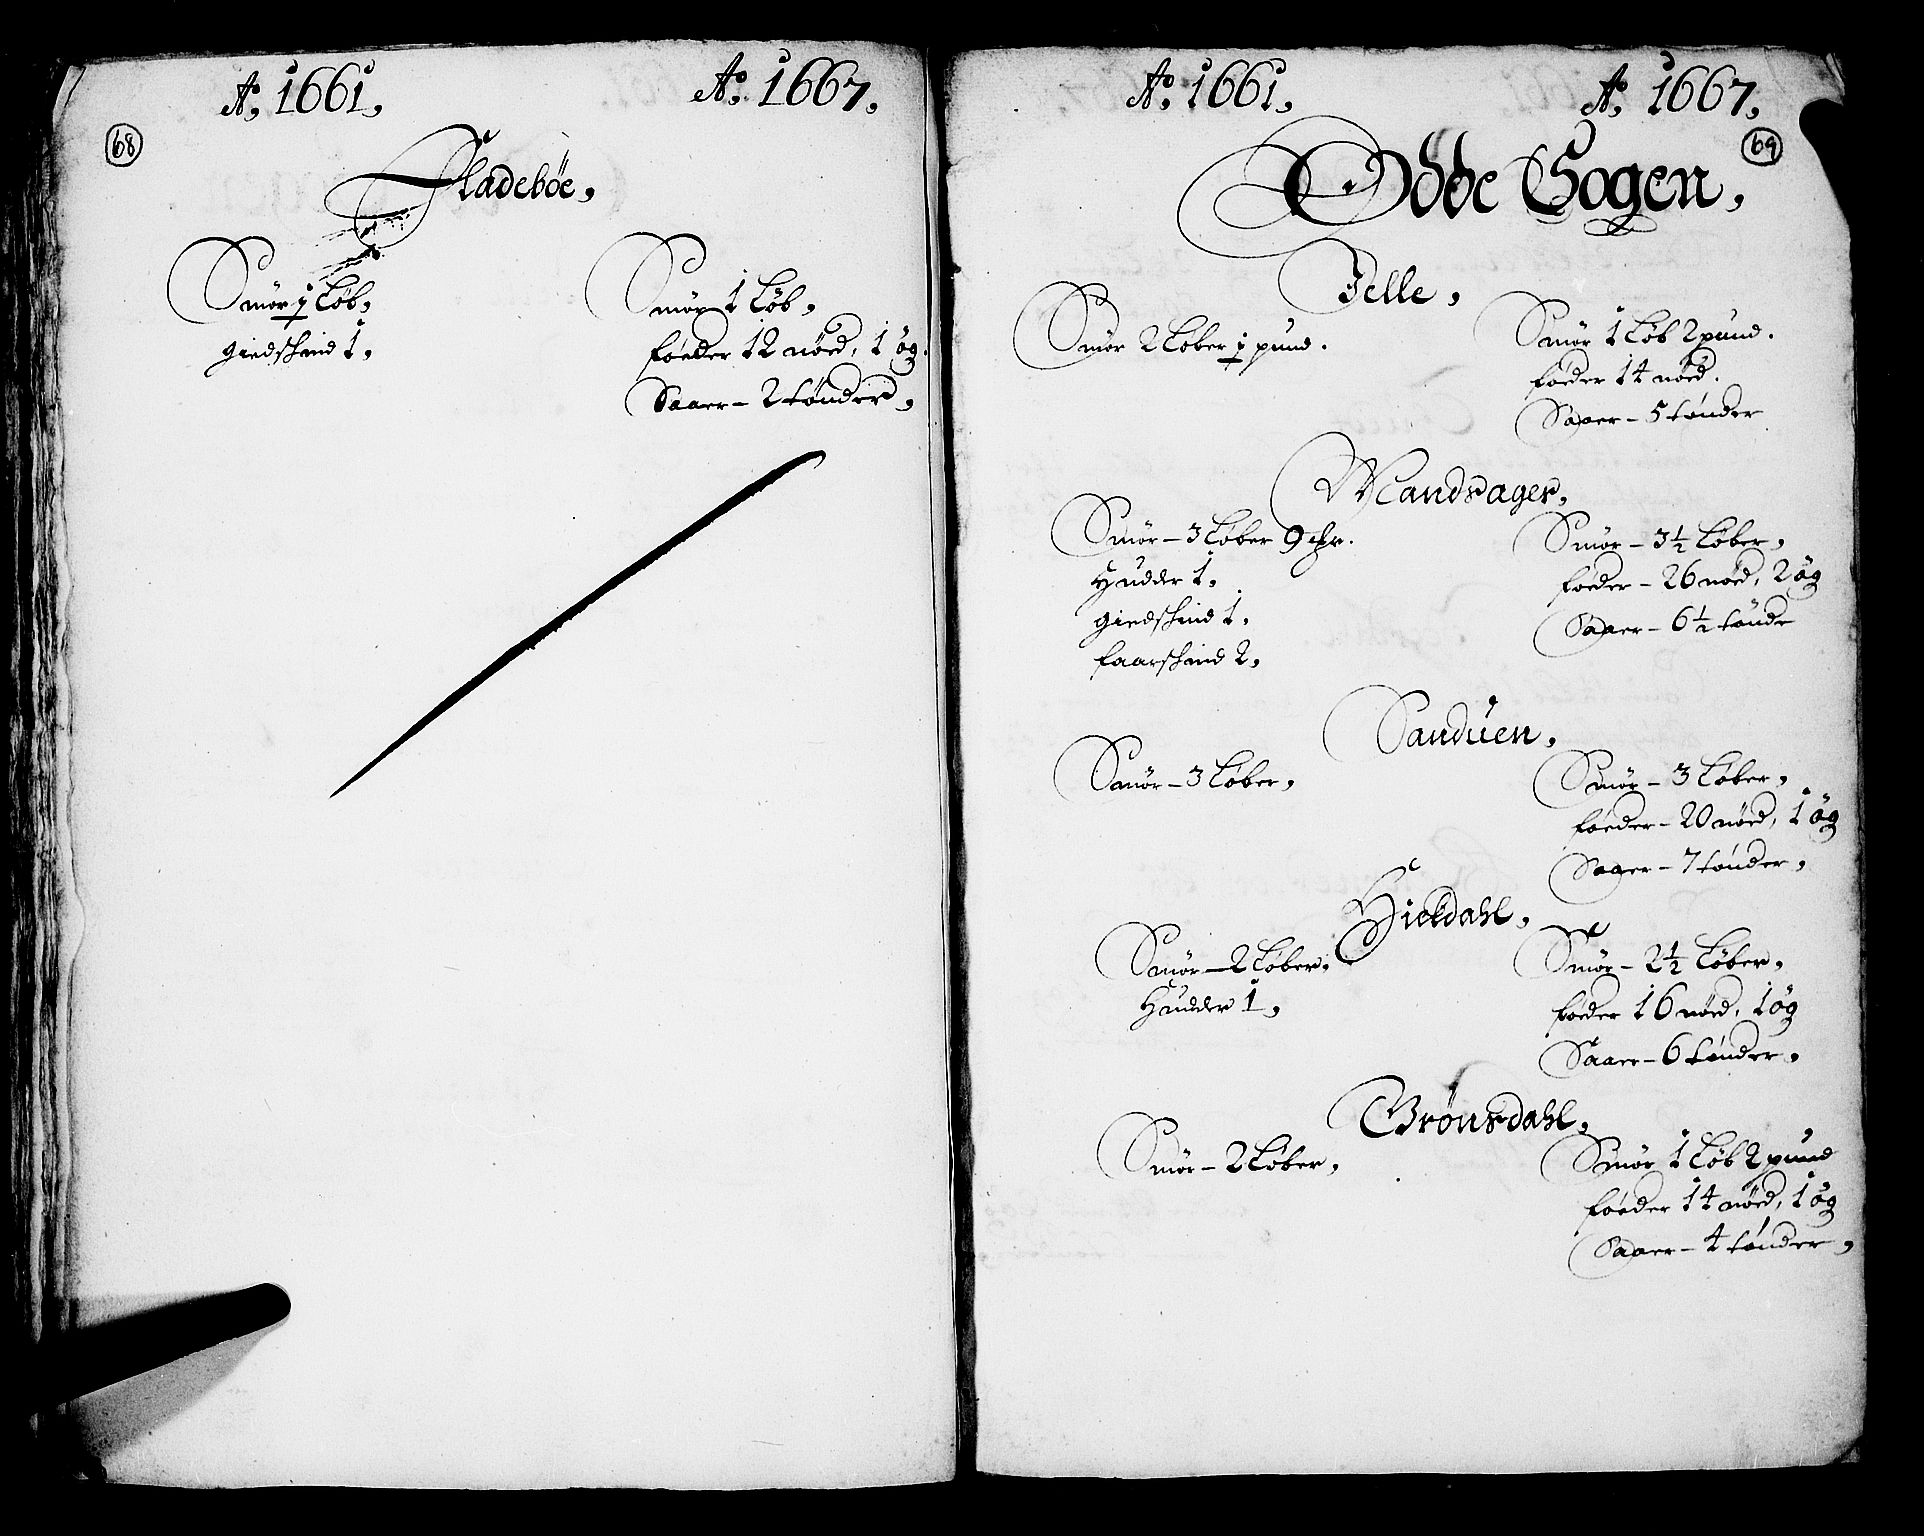 Ao. 1661, Ao. 1667,
68
Fladebøe,
Smör j Løb,
giedskind 1,
Smör 1 Løb,
føeder 12 nöed, 1 øg.
Saaer - 2 tønder,
Ao. 1661, Ao. 1667,
69
Odde Sogen,
Jelle,
Smör 2 Løber j pund.
Smör 1 Løb 2 pund.
føeder 14 nöed.
Saaer - 5 tønder
Mandsager,
Smör - 3 Løber 9
Hudder 1,
giedskind 1,
faarskind 2,
Smör - 3½ Løber,
føeder - 26 nöed, 2 øg
Saaer - 6½ tønde
Sanduen,
Smör - 3 Løber,
Smör - 3 Løber,
føeder - 20 nöed, 1 øg
Saaer - 7 tønder,
Hieldahl,
Smör - 2 Løber,
Hudder 1,
Smör - 2½ Løber,
føeder 16 nöed, 1 øg
Saaer - 6 tønder,
Brönsdahl,
Smör - 2 Løber,
Smör 1 Løb 2 pund
føeder 14 nöed, 1 øg
Saaer - 4 tønder,